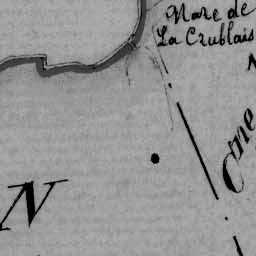 Mare de
La Crublais
N
Cne